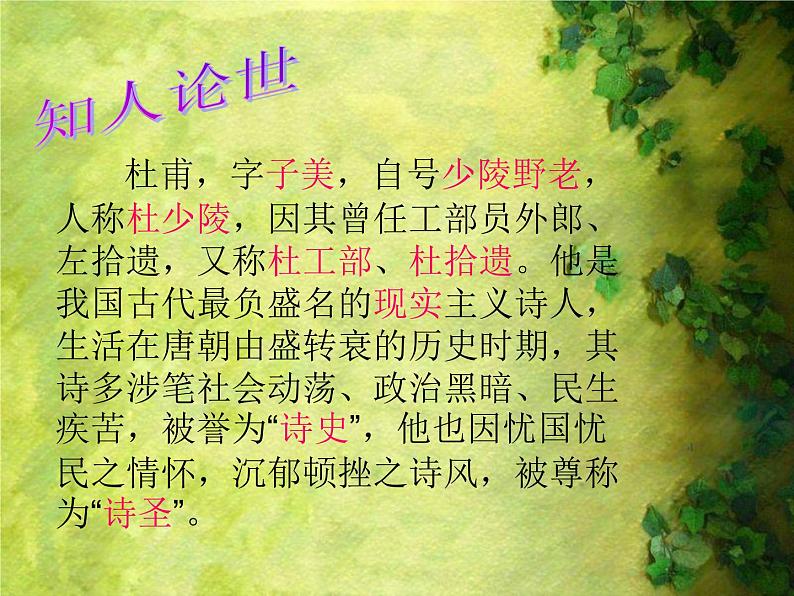 知人论世
杜甫，字子美，自号少陵野老，
人称杜少陵，因其曾任工部员外郎、
左拾遗，又称杜工部、杜拾遗。他是
我国古代最负盛名的现实主义诗人，
生活在唐朝由盛转衰的历史时期，其
诗多涉笔社会动荡、政治黑暗、民生
疾苦，被誉为“诗史”，他也因忧国忧
民之情怀，沉郁顿挫之诗风，被尊称
为“诗圣”。